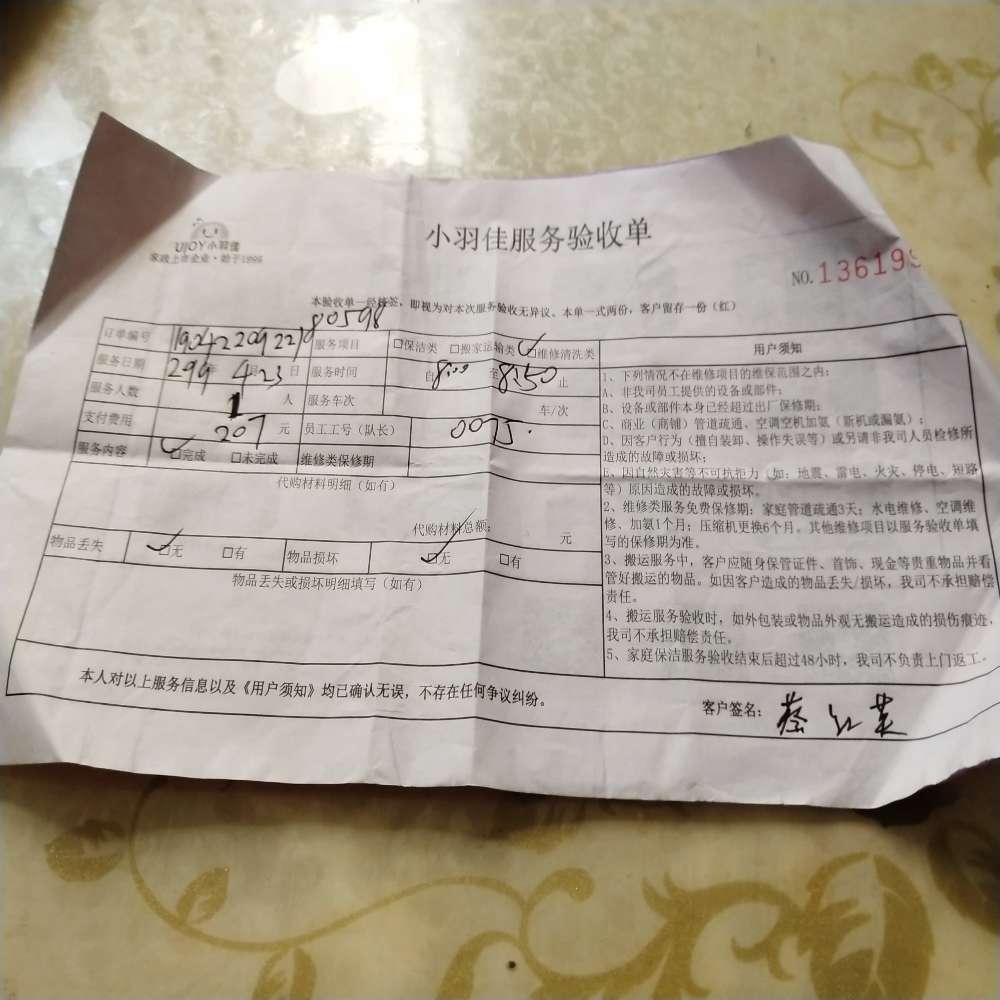 UJOY小羽佳
家政上市企业·始于1996
小羽佳服务验收单
NO.136199
本验收单一经接签，即视为对本次服务验收无异议、本单一式两份，客户留存一份（红）
订单编号 服务项目 □保洁类 □搬家运输类 □维修清洗类
服务日期 年 4月23日 服务时间 自 8:00 至 8:50 止
服务人数 1 人 服务车次 车/次
支付费用 207 元 员工工号（队长） 0075
服务内容 □完成 □未完成 维修类保修期
代购材料明细（如有）
代购材料总额： 元
物品丢失 □无 □有 物品损坏 □无 □有
物品丢失或损坏明细填写（如有）
用户须知
1、下列情况不在维修项目的维保范围之内：
A、非我司员工提供的设备或部件；
B、设备或部件本身已经超过出厂保修期；
C、商业（商铺）管道疏通、空调空机加氨（新机或漏氨）；
D、因客户行为（擅自装卸、操作失误等）或另请非我司人员检修所
造成的故障或损坏；
E、因自然灾害等不可抗拒力（如：地震、雷电、火灾、停电、短路
等）原因造成的故障或损坏。
2、维修类服务免费保修期：家庭管道疏通3天；水电维修、空调维
修、加氨1个月；压缩机更换6个月。其他维修项目以服务验收单填
写的保修期为准。
3、搬运服务中，客户应随身保管证件、首饰、现金等贵重物品并看
管好搬运的物品。如因客户造成的物品丢失/损坏，我司不承担赔偿
责任。
4、搬运服务验收时，如外包装或物品外观无搬运造成的损伤痕迹，
我司不承担赔偿责任。
5、家庭保洁服务验收结束后超过48小时，我司不负责上门返工。
本人对以上服务信息以及《用户须知》均已确认无误，不存在任何争议纠纷。
客户签名： 蔡红英